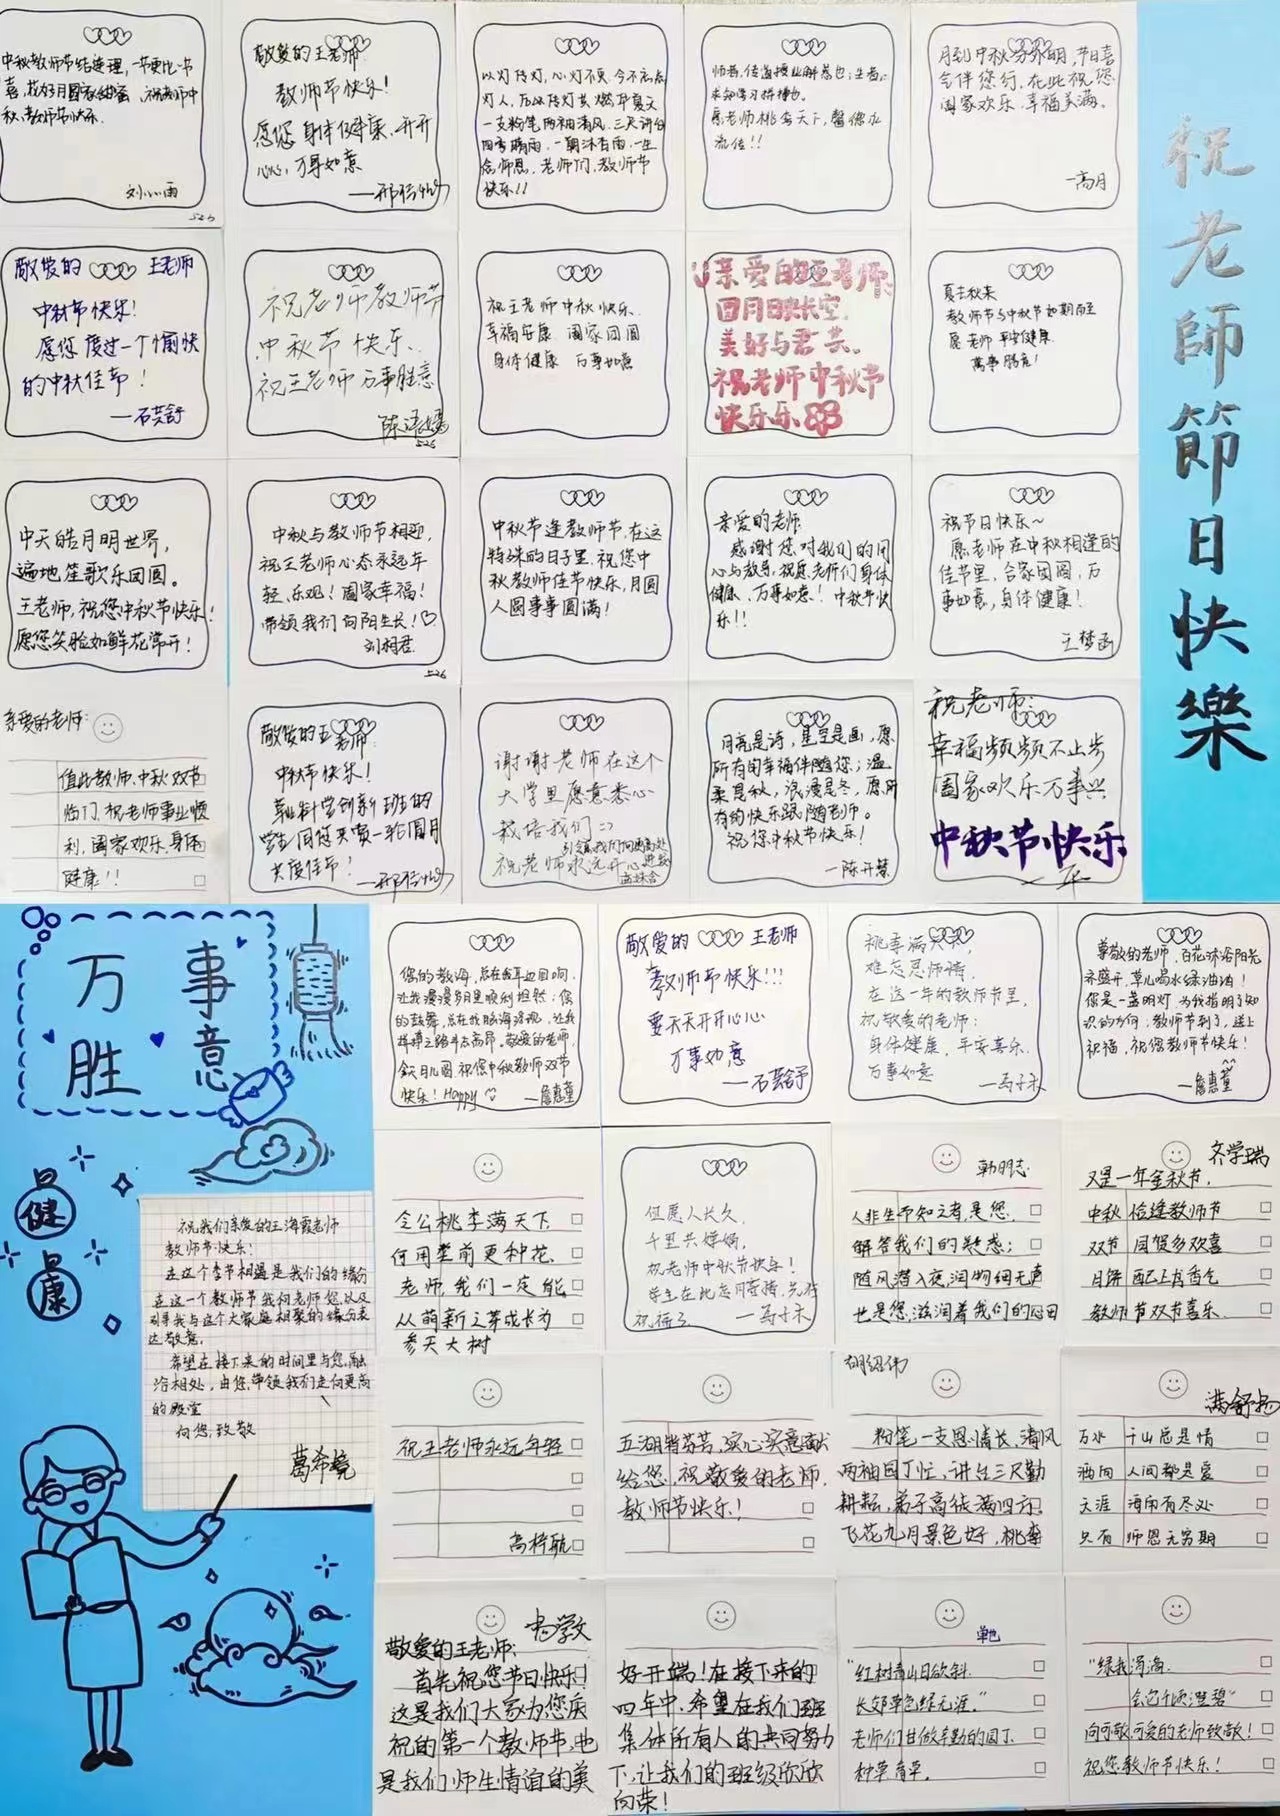 中秋教师节结连理，一节更比一节
喜，花好月圆衣甜蜜、祝老师中
秋，教师节快乐。
刘小雨
526
敬爱的王老师
教师节快乐！
愿您身体健康、开开
心心，万事如意
以灯传灯，心灯不灭，今不忘点
灯人，
一支粉笔两袖清风，三尺讲台
四季晴雨，一朝沐杏雨，一生
念师恩，老师们，教师节
快乐！！
师者，传道授业解惑也；生者，
求知学习拼搏也。
愿老师桃李天下，馨德永
流传！！
月到中秋分外明，节日喜
气伴您行，在此祝您
阖家欢乐，幸福美满。
一高月
祝老師節日快樂
敬爱的 王老师
中秋节快乐！
愿您度过一个愉快
的中秋佳节！
—石芸舒
祝老师教师节
中秋节快乐、
祝王老师万事胜意
526
祝王老师中秋快乐、
幸福安康 阖家团圆
身体健康 万事如意
亲爱的王老师：
圆月映长空，
美好与君共。
祝老师中秋节
快乐乐
夏去秋来
教师节与中秋节如期而至
愿老师平安健康
萬事勝意！
中天皓月明世界，
遍地笙歌乐团圆。
王老师，祝您中秋节快乐！
愿您笑脸如鲜花常开！
中秋与教师节相迎，
祝王老师心态永远年
轻、乐观！阖家幸福！
带领我们向阳生长！♡
刘桐君
526
中秋节逢教师节，在这
特殊的日子里，祝您中
秋教师佳节快乐，月圆
人圆事事圆满！
亲爱的老师：
感谢您对我们的关
心与教导，祝愿老师们身体
健康、万事如意！中秋节快
乐！！
祝节日快乐～
愿老师在中秋相逢的
佳节里，合家团圆，万
事如意，身体健康！
王梦函
亲爱的老师：
值此教师、中秋双节
临门，祝老师事业顺
利，阖家欢乐，身体
健康！！
敬爱的王老师：
中秋节快乐！
草业科学创新班的
学生同您共赏一轮圆月
共度佳节！
谢谢老师在这个
大学里愿意悉心
栽培我们
引领我们向更高处
进发
祝老师永远开心
月亮是诗，星空是画，愿
所有的幸福伴随您；温
柔是秋，浪漫是冬，愿所
有的快乐跟随老师。
祝您中秋节快乐！
—陈开慧
祝老师：
幸福频频不止步
阖家欢乐万事兴
中秋节快乐
万事
胜意
健
康
祝我们亲爱的王海霞老师
教师节快乐！
在这个季节相遇是我们的缘分
在这一个教师节我向老师您，以及
引导我与这个大家庭相聚的缘分表
达敬意。
希望在接下来的时间里与您融
洽相处，由您，带领我们走向更高
的殿堂
向您，致敬
葛希境
您的教诲，总在我耳边回响，
让我漫漫岁月里顺利坦然；您
的鼓舞，总在我脑海浮现，让我
拼搏之路斗志高昂。敬爱的老师，
今天月儿圆，祝您中秋教师双节
快乐！Happy
—詹惠萱
敬爱的 王老师
教师节快乐！！！
要天天开开心心
万事如意
—石芸舒
桃李满天下，
难忘恩师情，
在这一年的教师节里，
祝敬爱的老师：
身体健康，平安喜乐，
万事如意
—马子木
尊敬的老师，百花沐浴阳光
齐盛开，草儿喝水绿油油！
您是一盏明灯，为我指明了知
识的方向；教师节到了，送上
祝福，祝您教师节快乐！
—詹惠萱
令公桃李满天下，
何用堂前更种花。
老师，我们一定能
从萌新之芽成长为
参天大树
但愿人长久，
千里共婵娟，
祝老师中秋节快乐！
学生在此忘周寄情，先行
祝福了
—马子木
韩明志
人非生而知之者，是您，
解答我们的疑惑；
随风潜入夜，润物细无声
也是您，滋润着我们的心田
齐学瑞
又是一年金秋节，
中秋恰逢教师节
双节同贺多欢喜
月饼配上肯香气
教师节双节喜乐
祝王老师永远年轻
高梓航
五湖皆芬芳，实心实意献
给您，祝敬爱的老师，
教师节快乐！
胡绍伟
粉笔一支恩情长，清风
两袖园丁忙，讲台三尺勤
耕耘，弟子高徒满四方，
飞花九月景色好，桃李
满舒扬
万水千山总是情
洒向人间都是爱
天涯海角有尽处
只有师恩无穷期
敬爱的王老师：
首先祝您节日快乐！
这是我们大家为您庆
祝的第一个教师节，也
是我们师生情谊的美
好开端！在接下来的
四年中，希望在我们班
集体所有人的共同努力
下，让我们的班级欣欣
向荣！
“红树青山日欲斜，
长郊草色绿无涯。”
老师们甘做辛勤的园丁
种草育草。
“绿我涓滴，
会它千顷澄碧”
向可敬可爱的老师致敬！
祝您教师节快乐！